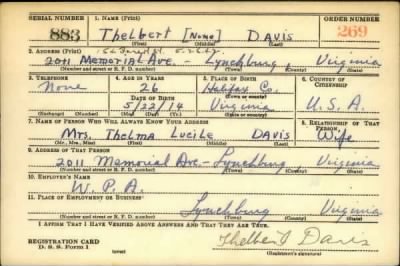 SERIAL NUMBER 1. NAME (Print) ORDER NUMBER
883 Thelbert [None] Davis 269
(First) (Middle) (Last)
3. ADDRESS (Print)
2011 Memorial Ave. - Lynchburg, Virginia
(Number and street or R. F. D. number) (Town) (County) (State)
3. TELEPHONE 4. AGE IN YEARS 5. PLACE OF BIRTH 6. COUNTRY OF CITIZENSHIP
None 26 Halifax Co.
DATE OF BIRTH (Town or county)
5/22/14 Virginia U.S.A.
(Exchange) (Number) (Mo.) (Day) (Yr.) (State or country)
7. NAME OF PERSON WHO WILL ALWAYS KNOW YOUR ADDRESS 8. RELATIONSHIP OF THAT PERSON
Mrs. Thelma Lucile Davis Wife
(Mr., Mrs., Miss) (First) (Middle) (Last)
9. ADDRESS OF THAT PERSON
2011 Memorial Ave - Lynchburg, Virginia
(Number and street or R. F. D. number) (Town) (County) (State)
10. EMPLOYER'S NAME
W.P.A.
11. PLACE OF EMPLOYMENT OR BUSINESS
Lynchburg Virginia
(Number and street or R. F. D. number) (Town) (County) (State)
I AFFIRM THAT I HAVE VERIFIED ABOVE ANSWERS AND THAT THEY ARE TRUE.
REGISTRATION CARD
D. S. S. Form 1 (over) Thelbert Davis
(Registrant's signature)